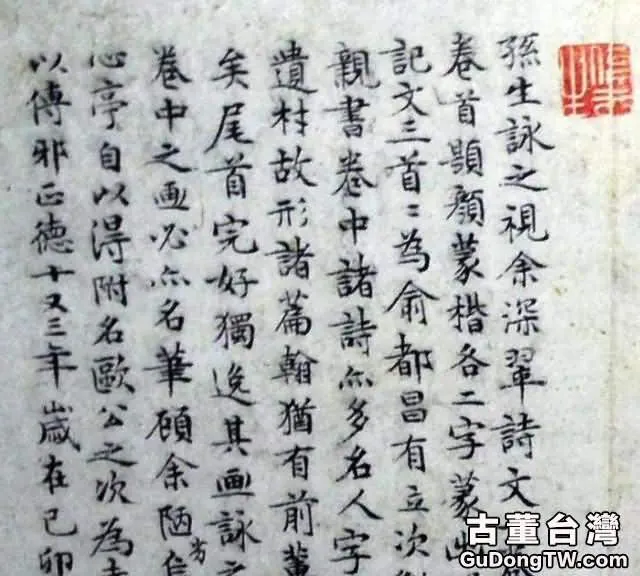 孫生詠之視余深翠詩文
卷首顯顏蒙楷各二字蒙
記文三首〻為俞都昌有立次
親書卷中諸詩亦多名人字
遺材故形諸篇翰猶有前輩
矣尾首完好獨逸其画詠之
卷中之画必亦名筆顧余陋
心亭自以得附名歐公之次為
以傳邪正德十又三年歲在己卯
古董台灣
GuDongTW.com